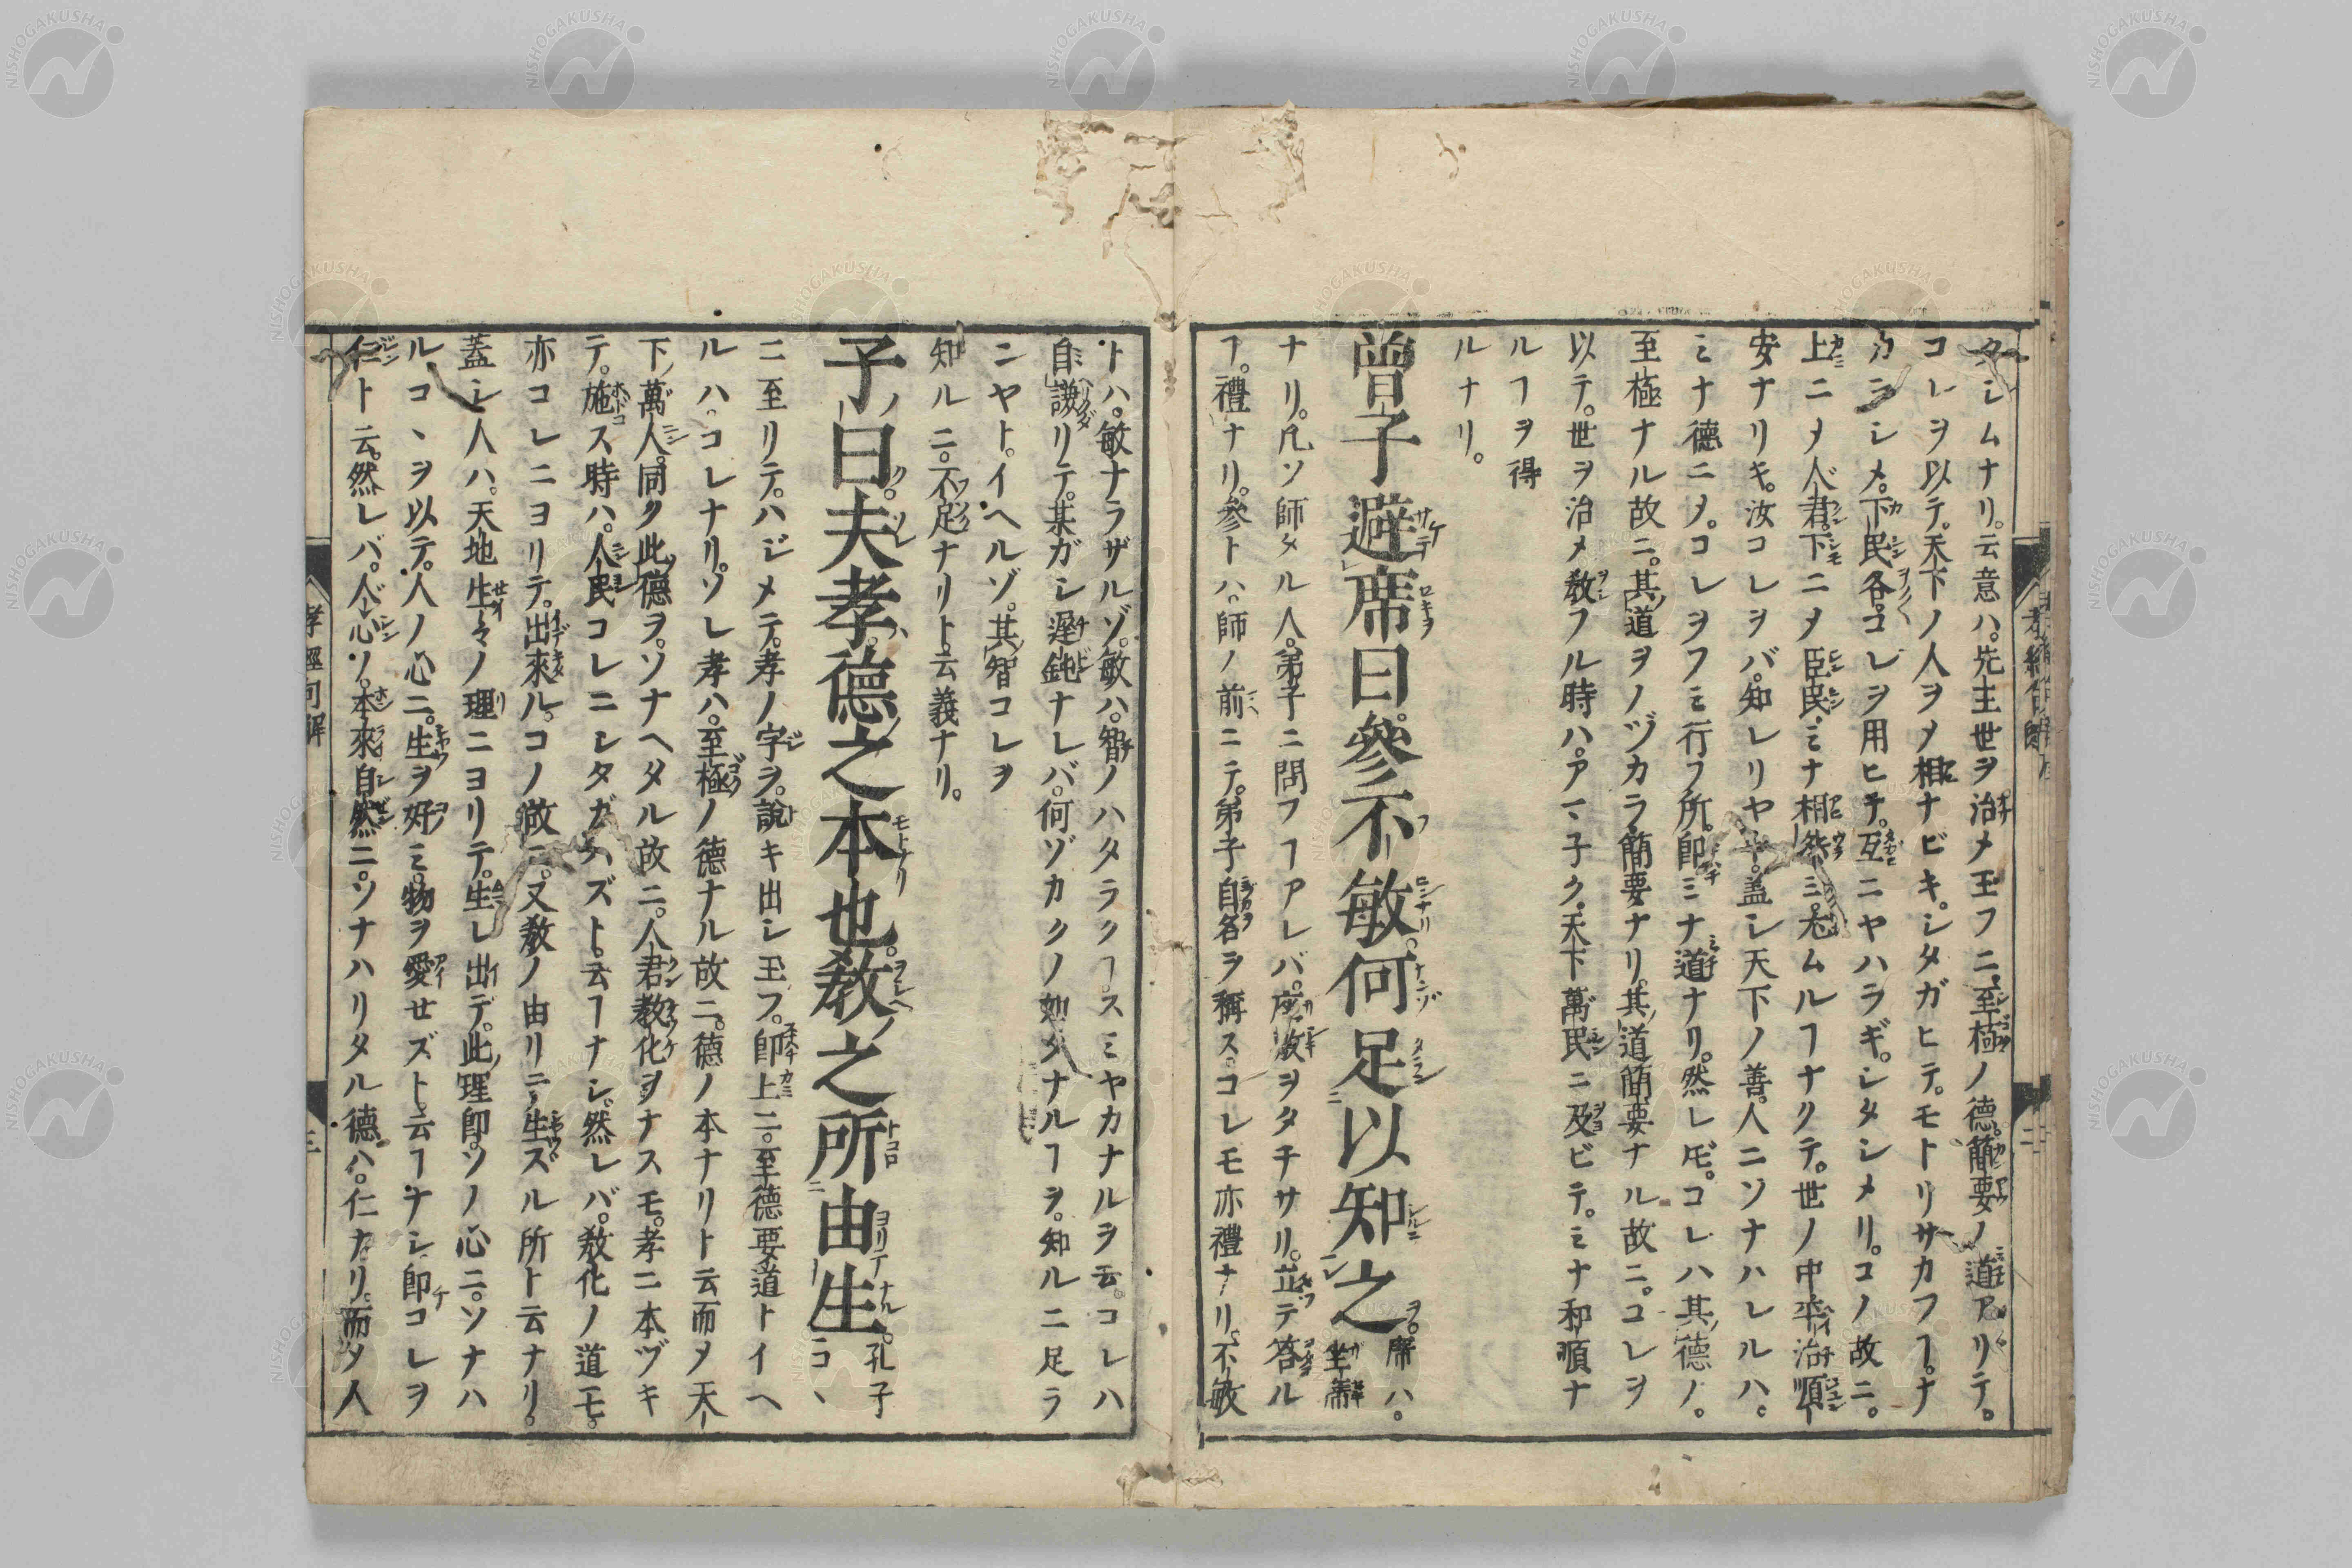 タシムナリ。云意ハ。先主世ヲ治メ玉フニ。至極ノ德。簡要ノ道アリテ。
コレヲ以テ。天下ノ人ヲメ相ナビキ。シタガヒテ。モトリサカフヿ。ナ
カラシメ。下民各。コレヲ用ヒテ。互ニヤハラギ。シタシメリ。コノ故ニ。
上ニメ人君。下ニメ臣民。ミナ相ムルヿナクテ。世ノ中平治順ト
安ナリキ。汝コレヲバ。知レリヤト。蓋シ天下ノ善。人ニソナハレルハ。
ミナ德ニメ。コレヲフミ行フ所。即ミナ道ナリ。然レ𪜈。コレハ其德ノ。
至極ナル故ニ。其道ヲノヅカラ簡要ナリ。其道簡要ナル故ニ。コレヲ
以テ。世ヲ治メ敎フル時ハ。アマ子ク。天下萬民ニ及ビテ。ミナ和順ナ
ルヿヲ得
ルナリ。
曾子避席曰參不敏何足以知之
席ハ。
坐席
ナリ。凡ソ師タル人。弟子ニ問フヿアレバ。座敷ヲタチサリ。立テ答ル
ヿ。禮ナリ。參トハ。師ノ前ニテ。弟子自名ヲ稱ス。コレモ亦禮ナリ。不敏
トハ。敏ナラザルゾ。敏ハ。智ノハタラクヿ。スミヤカナルヲ云。コレハ
自謙リテ。某ガシ遲鈍ナレバ。何ゾカクノ妙タナルヿヲ。知ルニ足ラ
ニヤト。イヘルゾ。其智コレヲ
知ルニ。不足ナリト。云義ナリ。
子曰夫孝德之本也敎之所由生
孔子
コヽ
ニ至リテ。ハジメテ。孝ノ字ヲ。說キ出シ玉フ。即上ニ。至德要道トイヘ
ルハ。コレナリ。ソレ孝ハ。至極ノ德ナル故ニ。德ノ本ナリト云而メ天
下萬人。同ク此德ヲ。ソナヘタル故ニ。人君敎化ヲナスモ。孝ニ本ヅキ
テ。施ス時ハ。人民コレニシタガハズト。云ヿナシ。然レバ。敎化ノ道モ。
亦コレニヨリテ。出來ル。コノ故ニ。又敎ノ由リテ生ズル所ト云ナリ。
蓋シ人ハ。天地生々ノ理ニヨリテ。生レ出デ。此理即。ソノ心ニ。ソナハ
ルコヽヲ以テ。人ノ心ニ。生ヲ好ミ。物ヲ愛せズト。云ヿナシ。即コレヲ
仁ト云。然レバ。人心ノ。本來自然ニ。ソナハリタル德ハ。仁ナリ。而メ人
孝經句解
三
孝經句解
二